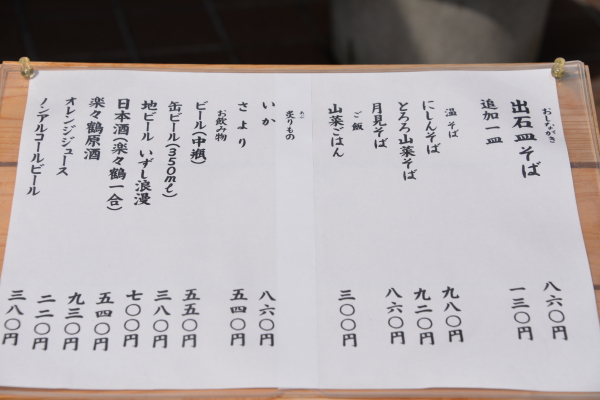 おしながき
出石皿そば 八六〇円
追加一皿 一三〇円
温そば
にしんそば 九八〇円
とろろ山菜そば 九二〇円
月見そば 八六〇円
ご飯
山菜ごはん 三〇〇円
あぶ
炙りもの
いか 八六〇円
さより 五四〇円
お飲み物
ビール(中瓶) 五五〇円
缶ビール(350ml) 三八〇円
地ビール いずし浪漫 七〇〇円
日本酒(楽々鶴一合) 五四〇円
楽々鶴原酒 九三〇円
オレンジジュース 二二〇円
ノンアルコールビール 三八〇円